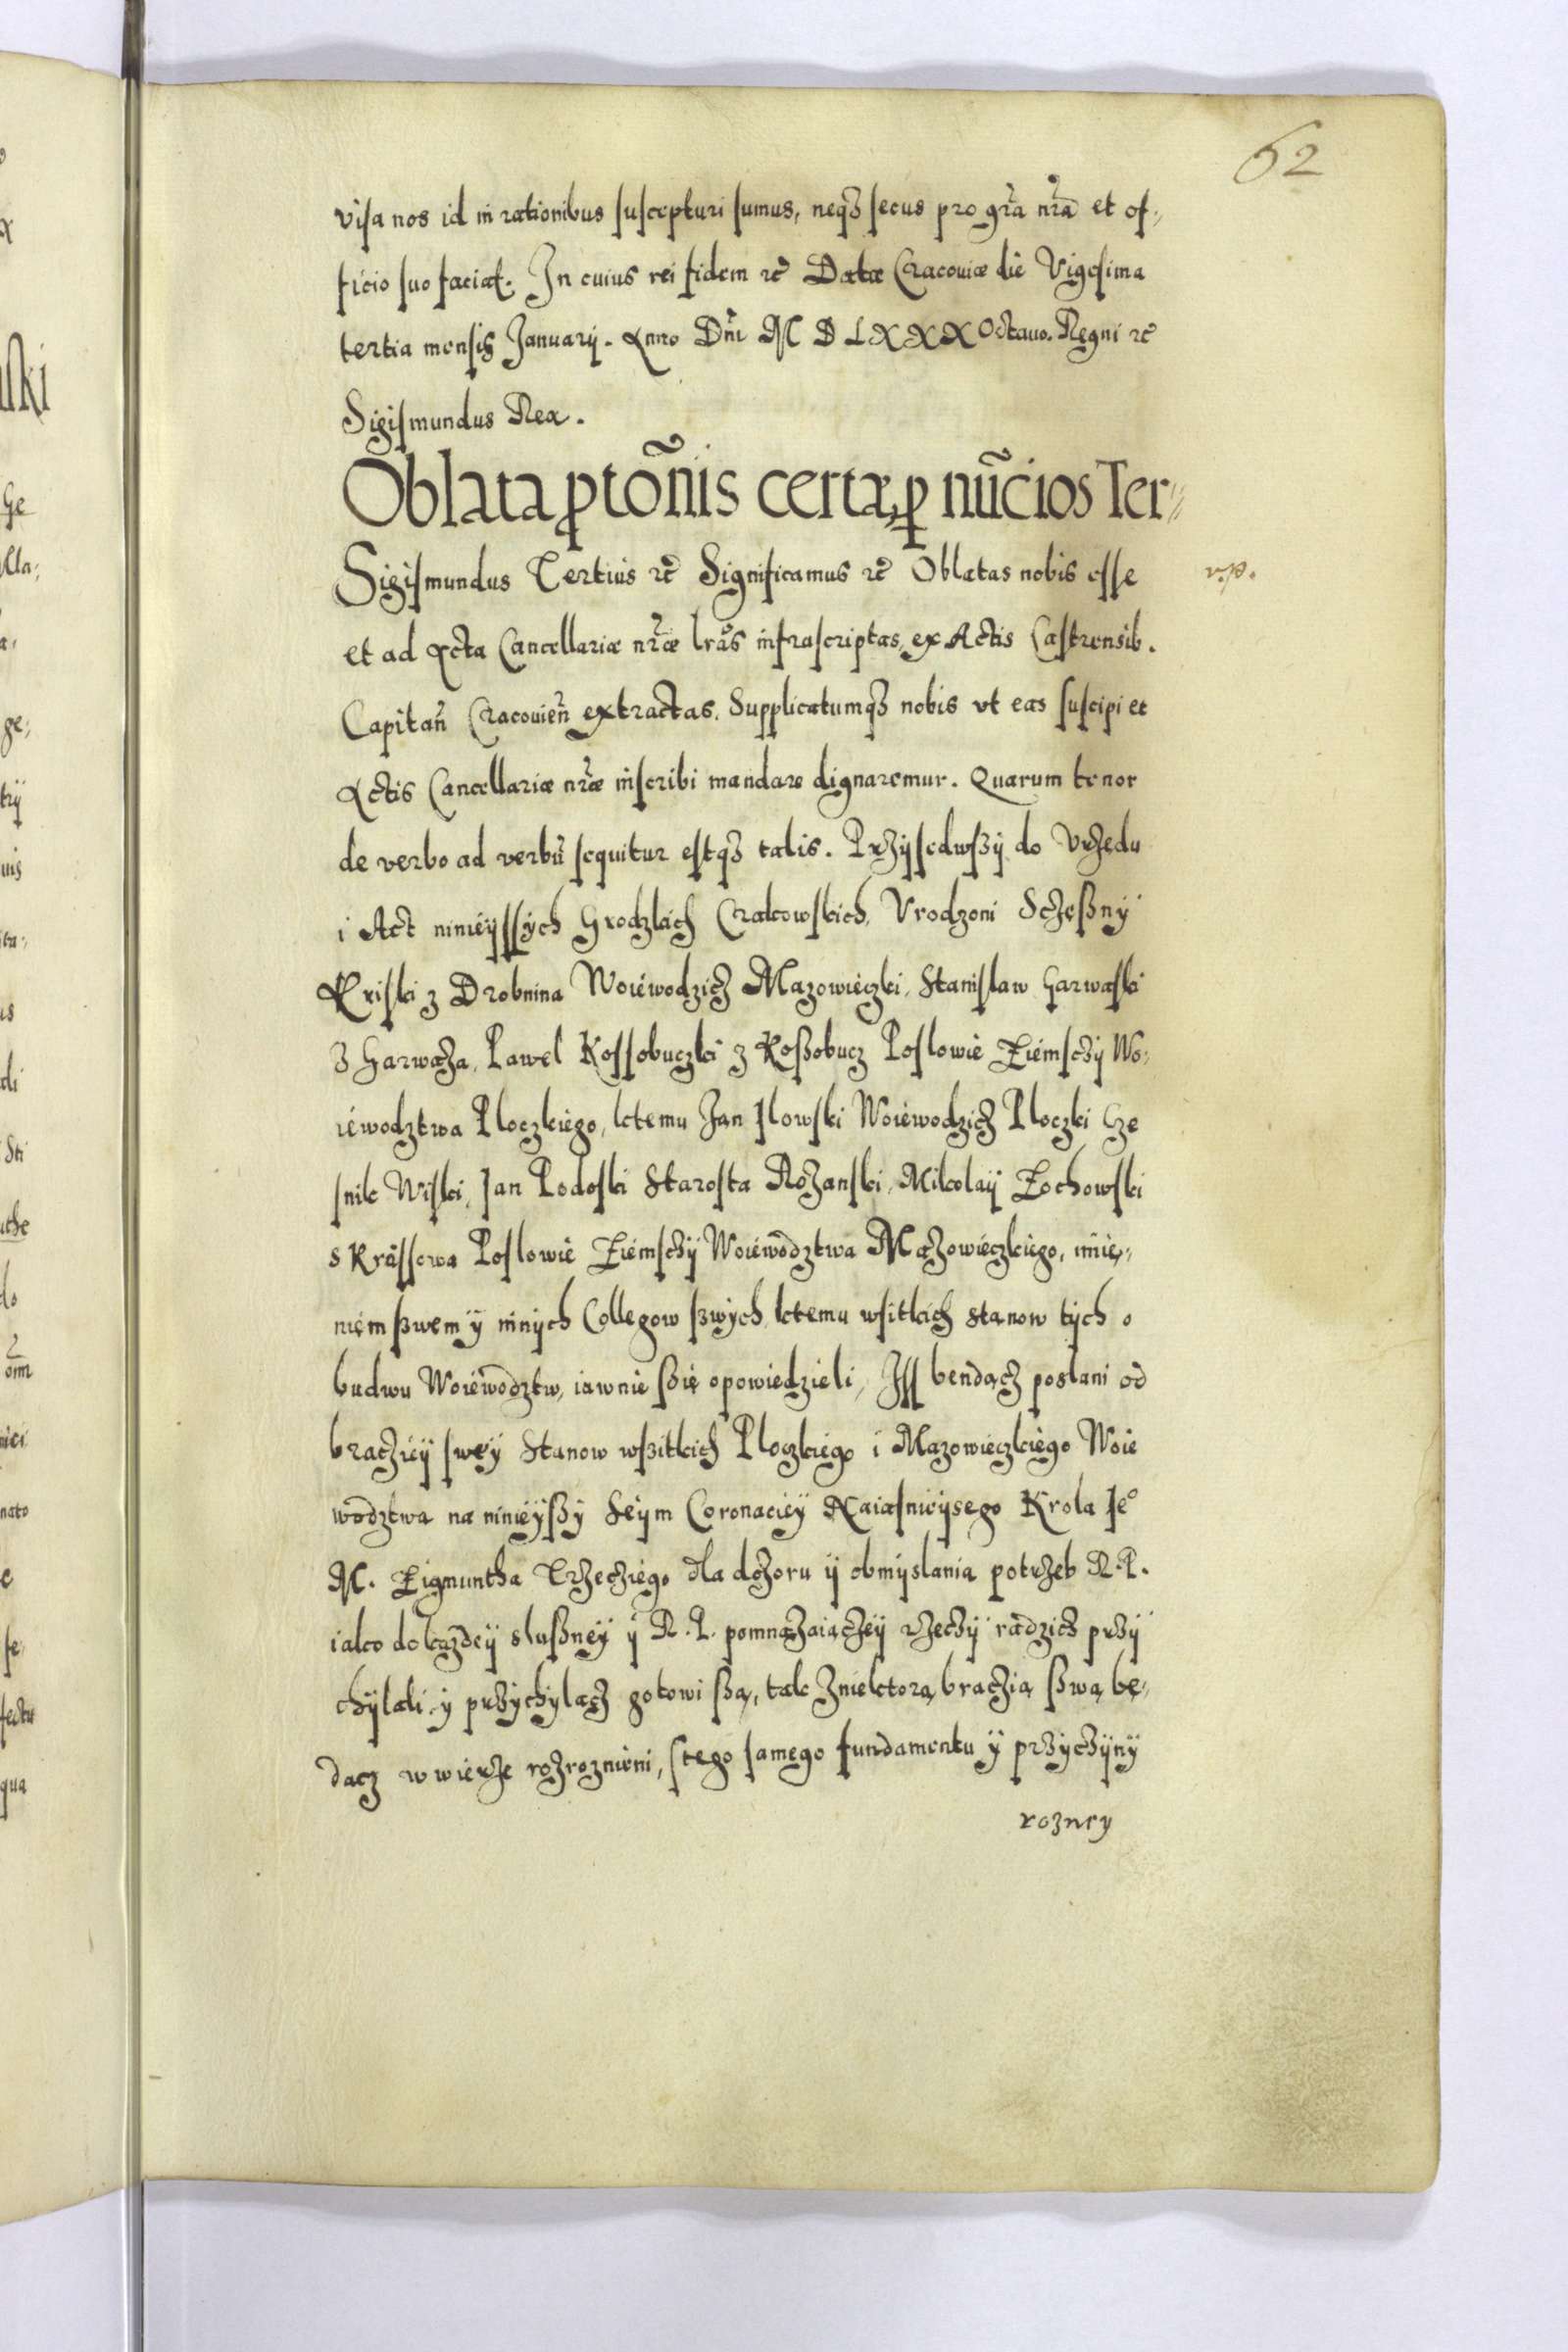 62
visa nos id in rationibus suscepturi sumus, neqȝ secus pro gr̃a nr̃a et of:
ficio suo faciat. In cuius rei fidem ꝛc̃ Datæ Cracoviæ die Vigesima
tertia mensis Januarij. Anno Dñi M D LXXX Octauo. Regni ꝛc̃
Sigismundus Rex.
Oblata ꝓtõnis certæ, ꝑ nũcios Ter=
Sigismundus Tertius ꝛc̃ Significamus ꝛc̃ Oblatas nobis esse
et ad Acta Cancellariæ nr̃æ lrãs infrascriptas, ex Actis Castrensib.
Capitañ Cracovieñ extractas. Supplicatumqȝ nobis vt eas suscipi et
Actis Cancellariæ nr̃æ inscribi mandare dignaremur. Quarum tenor
de verbo ad verbũ sequitur estqȝ talis. Przysedwszy do Vrzedu
i Act ninieÿssÿch Grodzkich Crakowskich, Vrodzoni Sczęsznÿ
Kriski z Drobnina Woiewodzicz Mazowieczki, Stanislaw Garwaski
Z Garwacza, Pawel Kossobuczki z Koszobucz Poslowie Ziemsczÿ Wo:
iewodztwa Ploczkiego, ktemu Jan Ilowski Woiewodzicz Ploczki Cze
snik Wiski, Jan Podoski Starosta Rożanski, Mikolaÿ Zochowski
s Krässowa Poslowie Ziemsczÿ Woiewodztwa Mazowieczkiego, imie,,
niem szwem ÿ ninÿch Collegow szwÿch, ktemu wsitkich stanow tÿch o
budwu Woiewodztw, iawnie szie opowiedzieli, Iss bendącz poslani od
braczieÿ sweÿ Stanow wszitkich Ploczkiego i Mazowieczkiego Woie
wodztwa na ninieÿszÿ Seÿm Coronacieÿ Naiasnieÿsego Krola Je°
M. Zigmuntha Trzecziego dla dczoru ÿ obmÿslania potrzeb R. P.
iako do każdeÿ sluszneÿ ÿ R. P. pomnażaiączeÿ rzeczÿ radzicz przÿ
chÿlali, ÿ przÿchÿlacz gotowi szą, tak Zniektorą braczią szwą bę,,
dacz w wierze rozroznieni, stego samego fundamentu ÿ przÿczÿnÿ
rozney